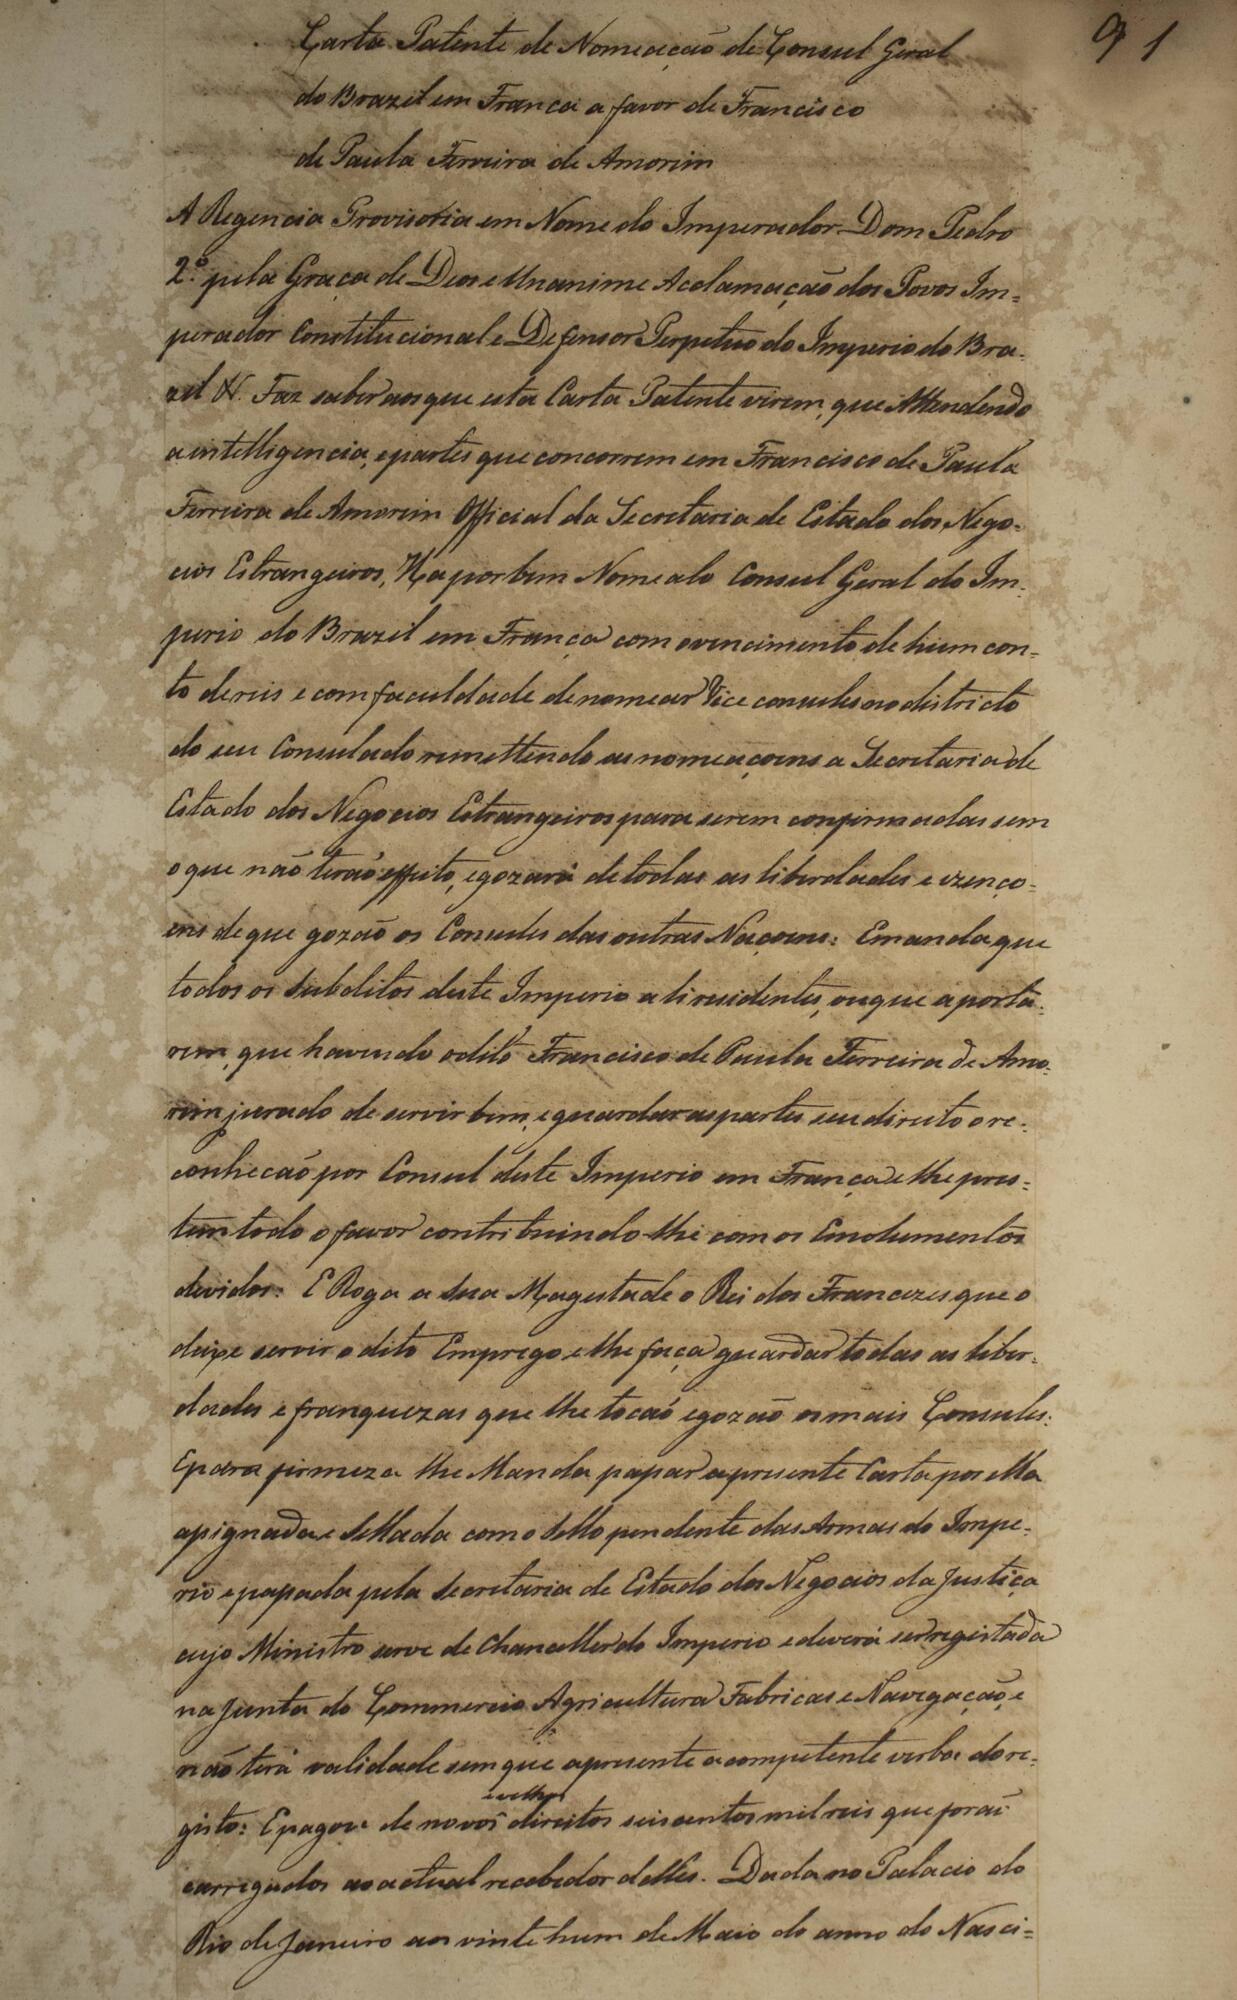 91
Carta Patente de Nomeação de Consul Geral
do Brazil em Franca a favor de Francisco
de Paula Ferreira de Amorim
A Regencia Provisoria em Nome do Imperador Dom Pedro
2.º pela Graça de Deos e Unanime Acclamação dos Povos Im=
perador Constitucional e Defensor Perpetuo do Imperio do Bra=
zil &. Faz saber aos que esta Carta Patente virem, que Attendendo
a intelligencia, e partes que concorrem em Francisco de Paula
Ferreira de Amorim Official da Secretaria de Estado dos Nego=
cios Estrangeiros, Ha por bem Nomealo Consul Geral do Im=
perio do Brazil em França com o vencimento de hum con=
to de reis e com faculdade de nomear Vice consules no districto
do seu Consulado remettendo as nomeaçoens a Secretaria de
Estado dos Negocios Estrangeiros para serem confirmadas sem
o que não terão effeito, e gozará de todas as liberdades e izenço=
ens de que gozão os Consules das outras Naçoens: E manda que
todos os Subditos deste Imperio ali residentes, ou que aporta=
rem, que havendo o dito Francisco de Paula Ferreira de Amo=
rim jurado de servir bem, e guardar as partes seu direito o re=
conheção por Consul deste Imperio em França e lhe pres=
tem todo o favor contribuindo-lhe com os Emolumentos
devidos: E Roga a Sua Magestade o Rei dos Francezes que o
deixe servir o dito Emprego e lhe faça guardar todas as liber=
dades e franquezas que lhe tocão e gozão os mais Consules:
E para firmeza lhe Manda passar a presente Carta por ella
assignada e Sellada com o Sello pendente das Armas do Impe=
rio e passada pela Secretaria de Estado dos Negocios da Justiça
cujo Ministro serve de Chanceller do Imperio e deverá ser registada
na Junta do Commercio Agricultura Fabricas e Navegação, e
não terá validade sem que apresente a competente verba do re=
gisto: E pagou de novos e velhos direitos seiscentos mil reis que forão
carregados ao actual recebedor delles. Dada no Palacio do
Rio de Janeiro aos vinte hum de Maio do anno do Nasci=